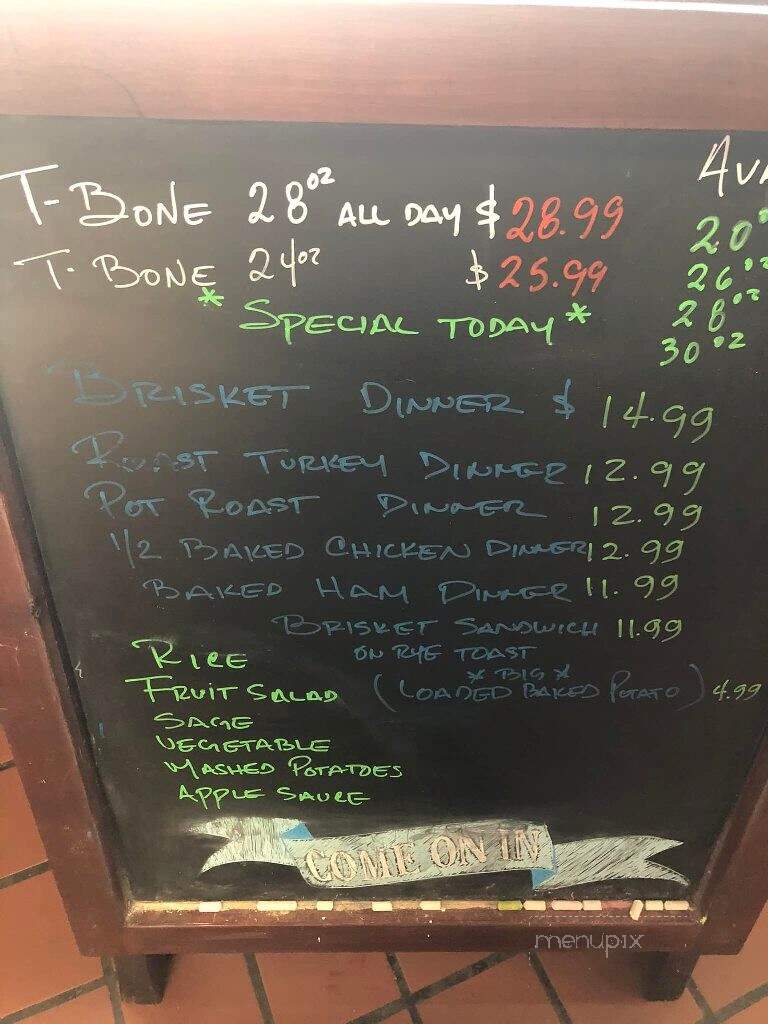 T-BONE 28oz ALL DAY $28.99
T-BONE 24oz $25.99
20
26oz
28oz
30oz
* SPECIAL TODAY *
BRISKET DINNER $ 14.99
ROAST TURKEY DINNER 12.99
POT ROAST DINNER 12.99
1/2 BAKED CHICKEN DINNER 12.99
BAKED HAM DINNER 11.99
BRISKET SANDWICH 11.99
ON RYE TOAST
* BIG *
(LOADED BAKED POTATO) 4.99
RICE
FRUIT SALAD
SAGE
VEGETABLE
MASHED POTATOES
APPLE SAUCE
COME ON IN
menupix